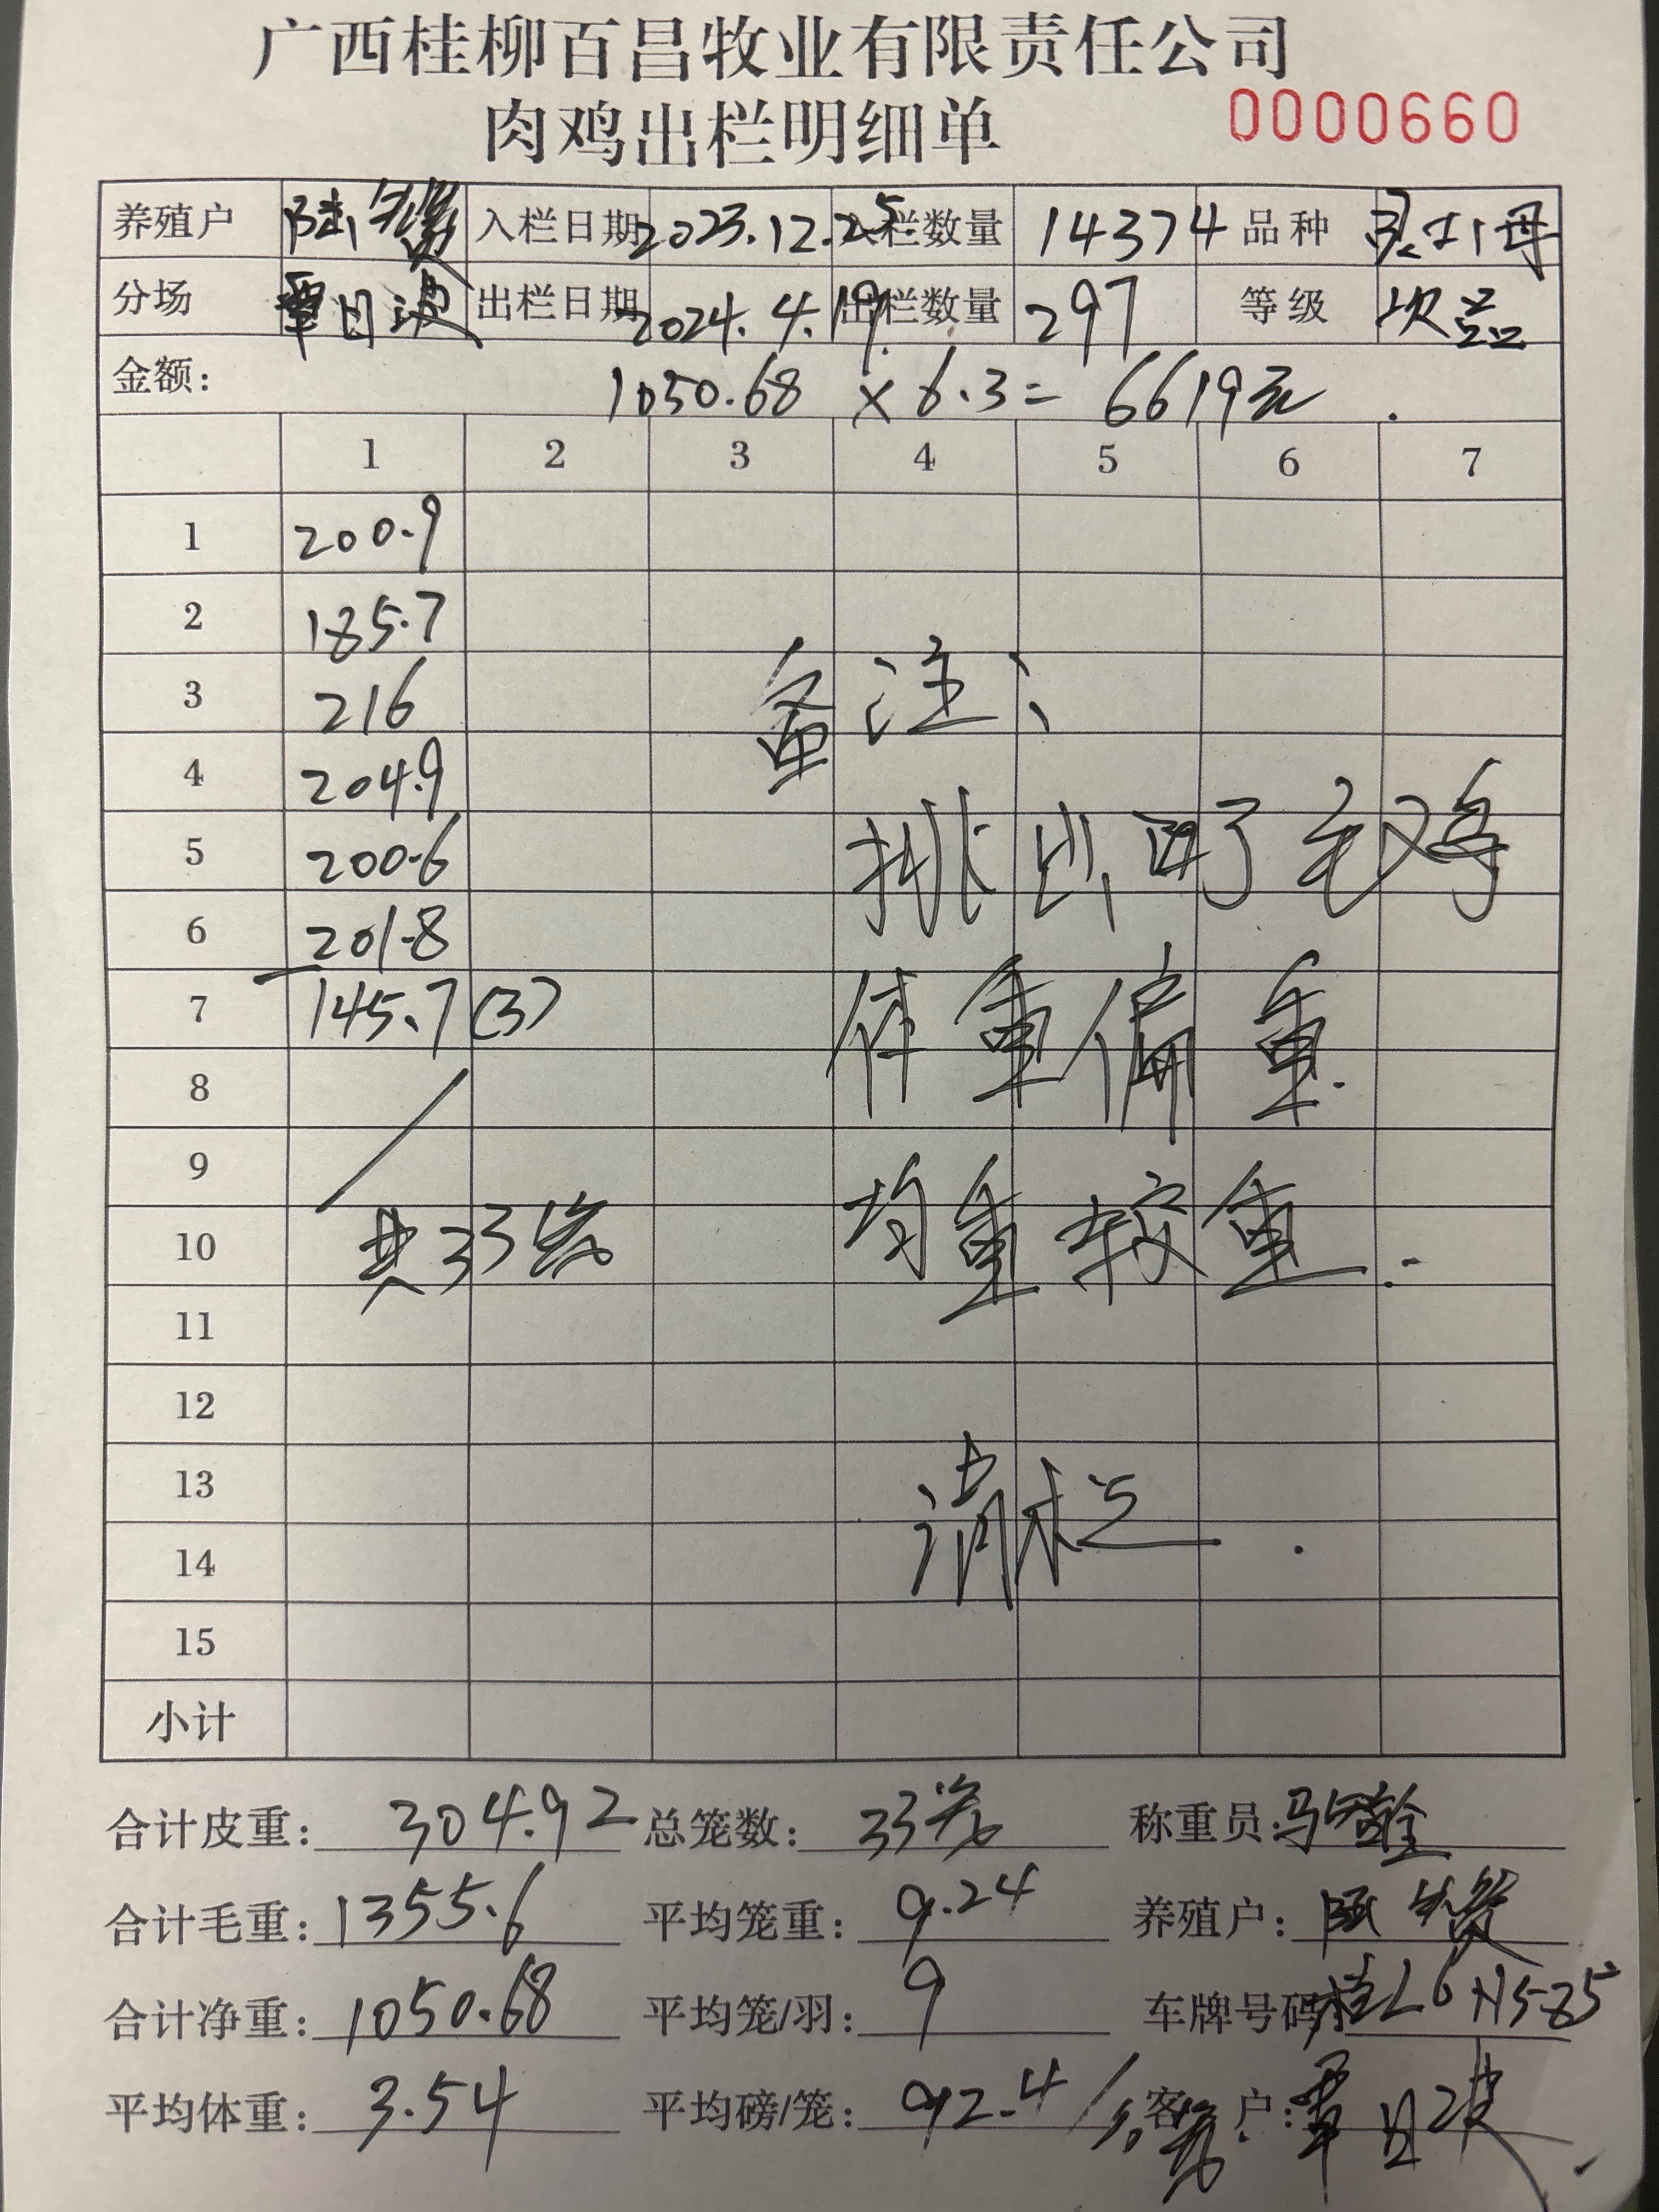 广西桂柳百昌牧业有限责任公司
肉鸡出栏明细单 0000660
养殖户 陆 入栏日期 2023.12.25 入栏数量 14374 品种
分场 覃日波 出栏日期 2024.4.19 出栏数量 297 等级 次品
金额: 1050.68 × 6.3 = 6619元.
1 2 3 4 5 6 7
1 200.9
2 185.7
3 216
4 204.9
5 200.6
6 201.8
7 145.7 (3)
8
9
10 共33笼
11
12
13
14
15
备注:
挑出 毛鸡
体重偏重.
均重较重.
清栏.
小计
合计皮重: 304.92 总笼数: 33笼 称重员: 马
合计毛重: 1355.6 平均笼重: 9.24 养殖户: 陆
合计净重: 1050.68 平均笼/羽: 9 车牌号码:
平均体重: 3.54 平均磅/笼: 92.4/ 客 户: 覃日波